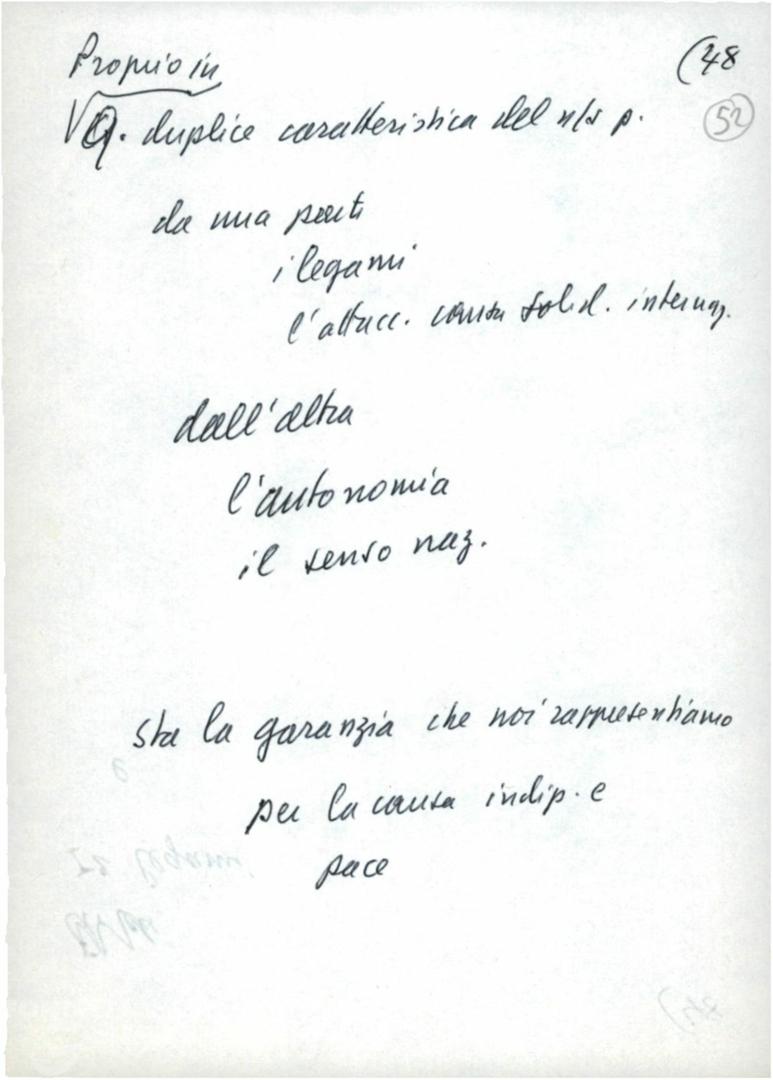 Proprio in
(48
52
Q. duplice caratteristica del n/s p.
da una parte
i legami
l'attacc. causa solid. internaz.
dall'altra
l'autonomia
il senso naz.
sta la garanzia che noi rappresentiamo
per la causa indip. e
pace